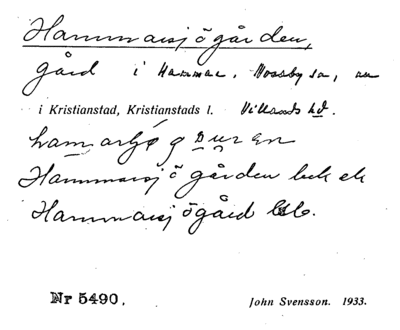 Hammarsjögården,
gård i Hammar, Nosaby sn, nu
i Kristianstad, Kristianstads l. Villands hd.
Hammarsjögården
Hammarsjögård
Nr 5490. John Svensson. 1933.